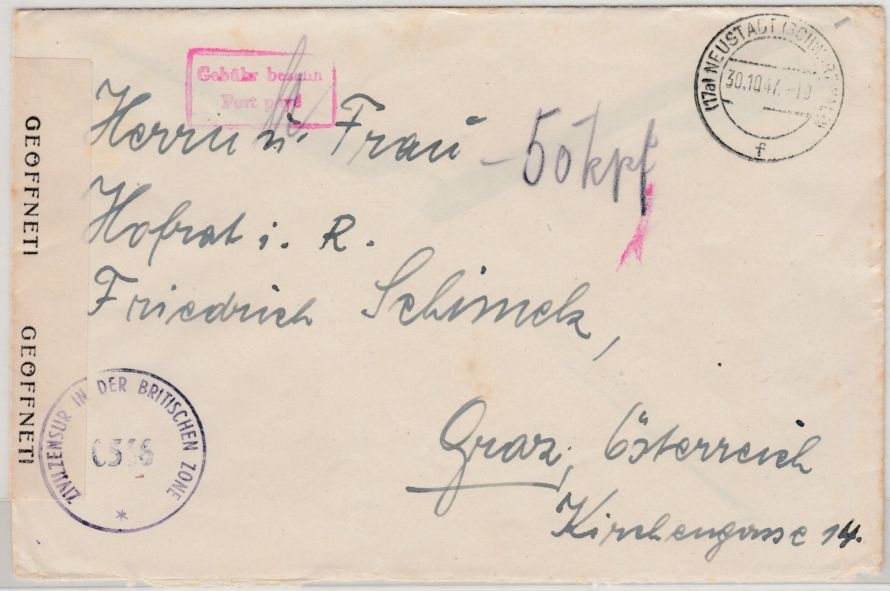 Gebühr bezahlt
Port payé
(17a) NEUSTADT (SCHWARZWALD)
30.10.47.
f
Herrn u. Frau
-50 kpf
Hofrat i. R.
Friedrich Schimek,
Graz, Österreich
Kirchengasse 14.
GEÖFFNET!
GEÖFFNET!
ZIVILZENSUR IN DER BRITISCHEN ZONE
*